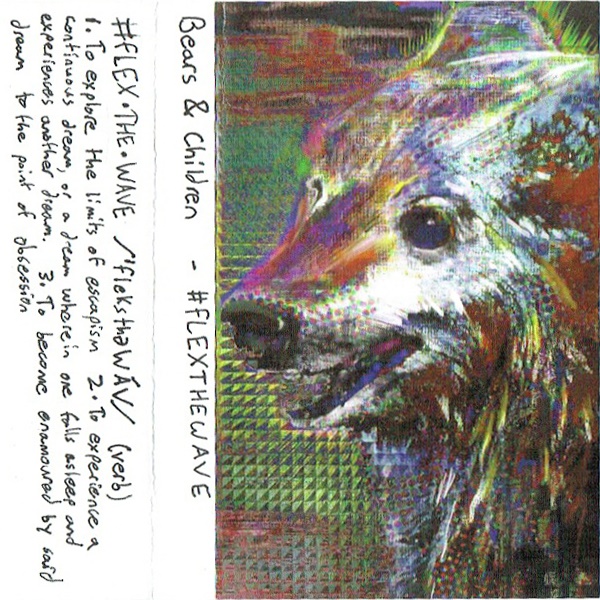 Bears & Children - #FLEXTHEWAVE
#FLEX•THE•WAVE /'flɛksthəwĀV/ (verb)
1. To explore the limits of escapism 2. To experience a
continuous dream, of a dream wherein one falls asleep and
experiences another dream. 3. To become enamoured by said
dream to the point of obsession